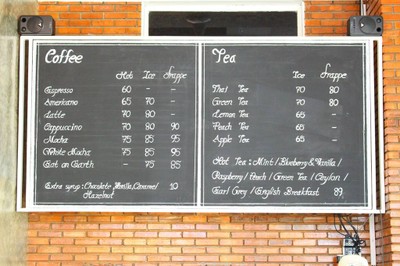 Coffee
Hot Ice Frappe
Espresso 60 - -
Americano 65 70 -
Latte 70 80 -
Cappuccino 70 80 90
Mocha 75 85 95
White Mocha 75 85 95
Eat on Earth - 75 85
Extra syrup : Chocolate, Vanilla, Caramel, 10
Hazelnut
Tea
Ice Frappe
Thai Tea 70 80
Green Tea 70 80
Lemon Tea 65 -
Peach Tea 65 -
Apple Tea 65 -
Hot Tea : Mint / Blueberry & Vanilla /
/ Peach / Green Tea / Ceylon /
Earl Grey / English Breakfast 89.